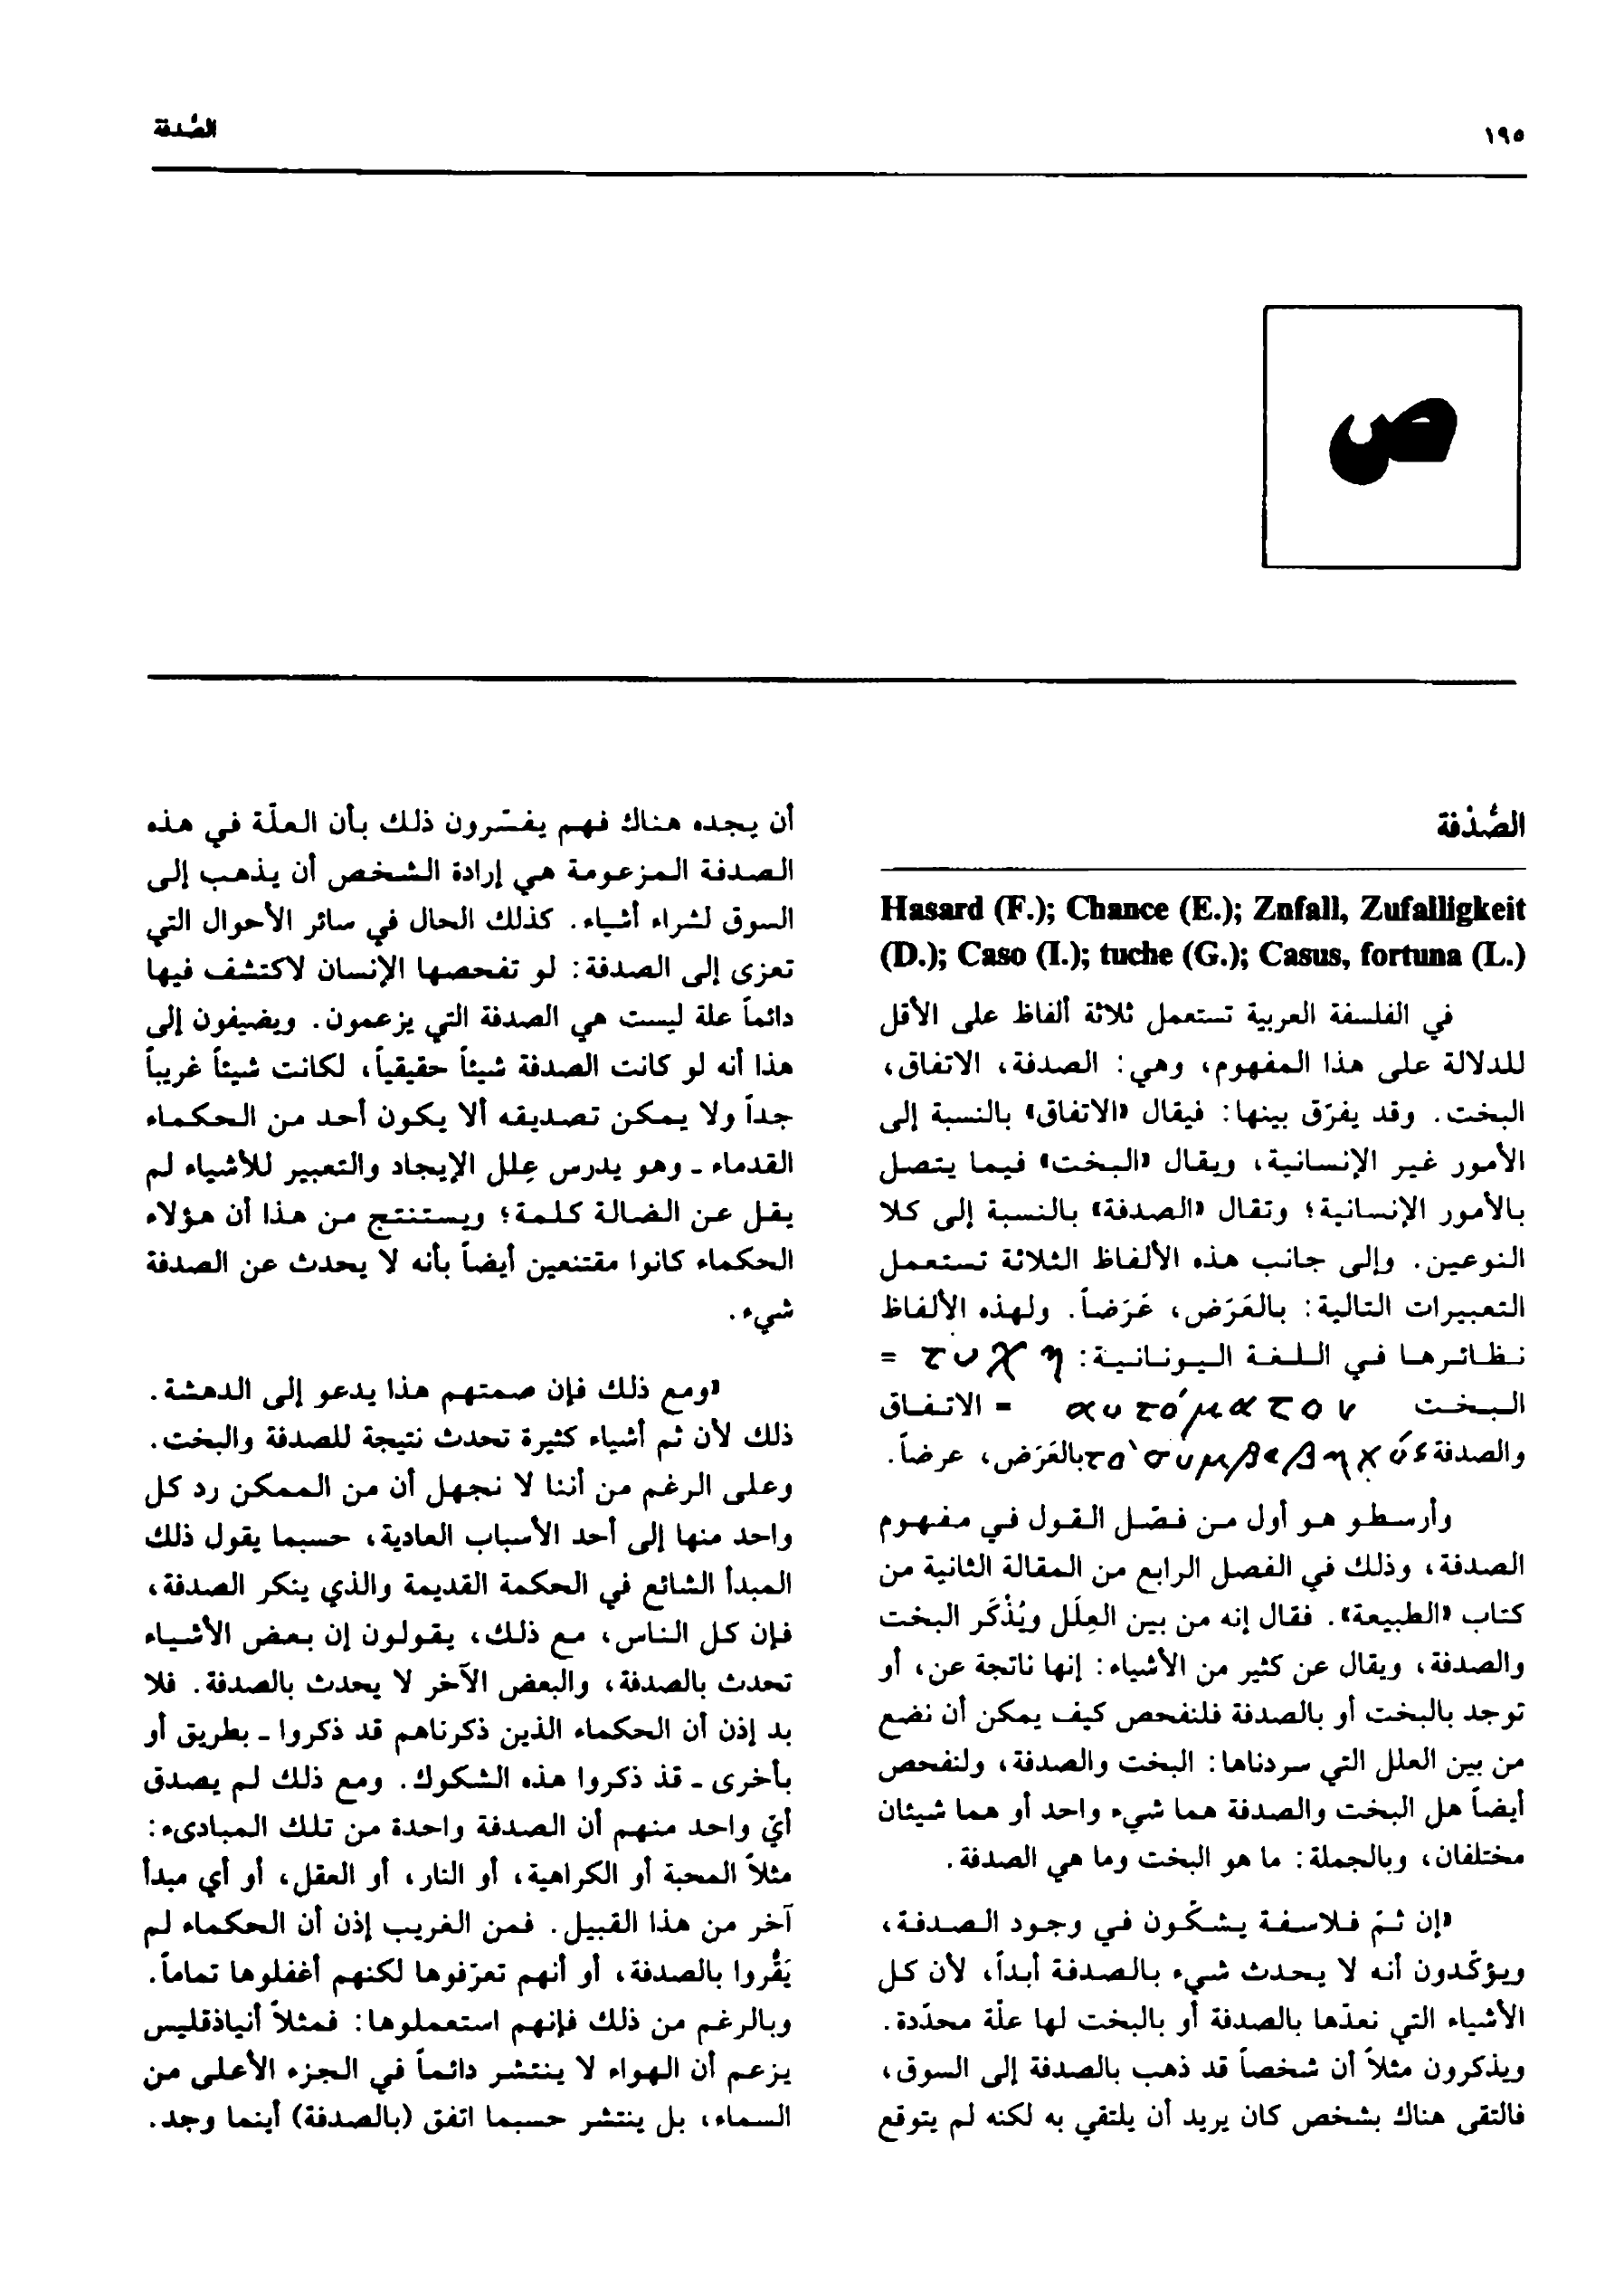 ١٩٥
الصُّدفة
ص
الصُّدْفة
Hasard (F.); Chance (E.); Znfall, Zufalligkeit
(D.); Caso (I.); tuche (G.); Casus, fortuna (L.)
في الفلسفة العربية تستعمل ثلاثة ألفاظ على الأقل
للدلالة على هذا المفهوم، وهي: الصدفة، الاتفاق،
البخت. وقد يفرّق بينها: فيقال «الاتفاق» بالنسبة إلى
الأمور غير الإنسانية، ويقال «البخت» فيما يتصل
بالأمور الإنسانية؛ وتقال «الصدفة» بالنسبة إلى كلا
النوعين. وإلى جانب هذه الألفاظ الثلاثة تستعمل
التعبيرات التالية: بالعَرَض، عَرَضاً. ولهذه الألفاظ
نظائرها في اللغة اليونانية: τυχη =
البخت αυτόματον = الاتفاق
والصدفة τὸ συμβεβηχός بالعَرَض، عرضاً.
وأرسطو هو أول من فصّل القول في مفهوم
الصدفة، وذلك في الفصل الرابع من المقالة الثانية من
كتاب «الطبيعة». فقال إنه من بين العِلَل ويُذْكَر البخت
والصدفة، ويقال عن كثير من الأشياء: إنها ناتجة عن، أو
توجد بالبخت أو بالصدفة فلنفحص كيف يمكن أن نضع
من بين العلل التي سردناها: البخت والصدفة، ولنفحص
أيضاً هل البخت والصدفة هما شيء واحد أو هما شيئان
مختلفان، وبالجملة: ما هو البخت وما هي الصدفة.
«إن ثمّ فلاسفة يشكّون في وجود الصدفة،
ويؤكّدون أنه لا يحدث شيء بالصدفة أبداً، لأن كل
الأشياء التي نعدّها بالصدفة أو بالبخت لها علّة محدّدة.
ويذكرون مثلاً أن شخصاً قد ذهب بالصدفة إلى السوق،
فالتقى هناك بشخص كان يريد أن يلتقي به لكنه لم يتوقع
أن يجده هناك فهم يفسّرون ذلك بأن العلّة في هذه
الصدفة المزعومة هي إرادة الشخص أن يذهب إلى
السوق لشراء أشياء. كذلك الحال في سائر الأحوال التي
تعزى إلى الصدفة: لو تفحصها الإنسان لاكتشف فيها
دائماً علة ليست هي الصدفة التي يزعمون. ويضيفون إلى
هذا أنه لو كانت الصدفة شيئاً حقيقياً، لكانت شيئاً غريباً
جداً ولا يمكن تصديقه ألا يكون أحد من الحكماء
القدماء ـ وهو يدرس عِلل الإيجاد والتعبير للأشياء لم
يقل عن الضالة كلمة؛ ويستنتج من هذا أن هؤلاء
الحكماء كانوا مقتنعين أيضاً بأنه لا يحدث عن الصدفة
شيء.
«ومع ذلك فإن صمتهم هذا يدعو إلى الدهشة.
ذلك لأن ثم أشياء كثيرة تحدث نتيجة للصدفة والبخت.
وعلى الرغم من أننا لا نجهل أن من الممكن رد كل
واحد منها إلى أحد الأسباب العادية، حسبما يقول ذلك
المبدأ الشائع في الحكمة القديمة والذي ينكر الصدفة،
فإن كل الناس، مع ذلك، يقولون إن بعض الأشياء
تحدث بالصدفة، والبعض الآخر لا يحدث بالصدفة. فلا
بد إذن أن الحكماء الذين ذكرناهم قد ذكروا ـ بطريق أو
بأخرى ـ قذ ذكروا هذه الشكوك. ومع ذلك لم يصدق
أيّ واحد منهم أن الصدفة واحدة من تلك المبادىء:
مثلاً المحبة أو الكراهية، أو النار، أو العقل، أو أي مبدأ
آخر من هذا القبيل. فمن الغريب إذن أن الحكماء لم
يَقُروا بالصدفة، أو أنهم تعرّفوها لكنهم أغفلوها تماماً.
وبالرغم من ذلك فإنهم استعملوها: فمثلاً أنباذقليس
يزعم أن الهواء لا ينتشر دائماً في الجزء الأعلى من
السماء، بل ينتشر حسبما اتفق (بالصدفة) أينما وجد.